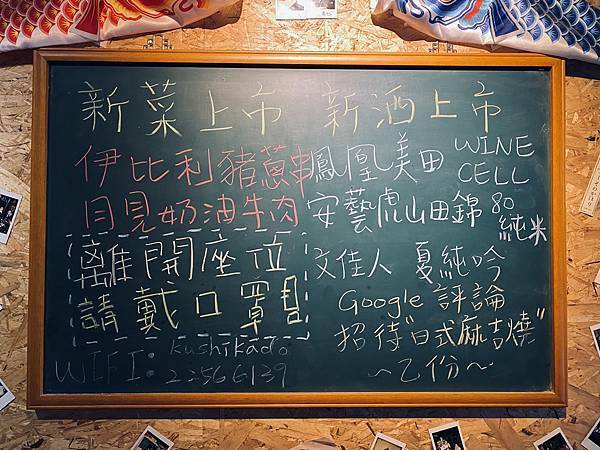 新菜上市
伊比利豬蔥串
月見奶油牛肉
離開座位
請戴口罩
WIFI: kushikado
22566139
新酒上市
鳳凰美田 WINE CELL
安藝虎山田錦80純米
文佳人 夏純吟
Google 評論
招待"日式麻吉燒"
~乙份~